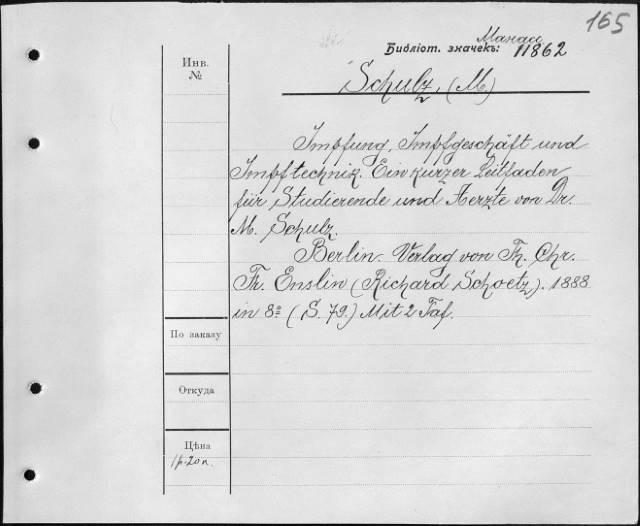 165
Манасс
Библіот. значекъ: 11862
Инв.
№
Schulz, (M.)
Impfung, Impfgeschäft und
Impftechnik. Ein kurzer Leitfaden
für Studierende und Aerzte von Dr.
M. Schulz.
Berlin. Verlag von Th. Chr.
Fr. Enslin (Richard Schoetz). 1888
in 8º (S. 79.) Mit 2 Taf.
По заказу
Откуда
Цѣна
1 р. 20 к.